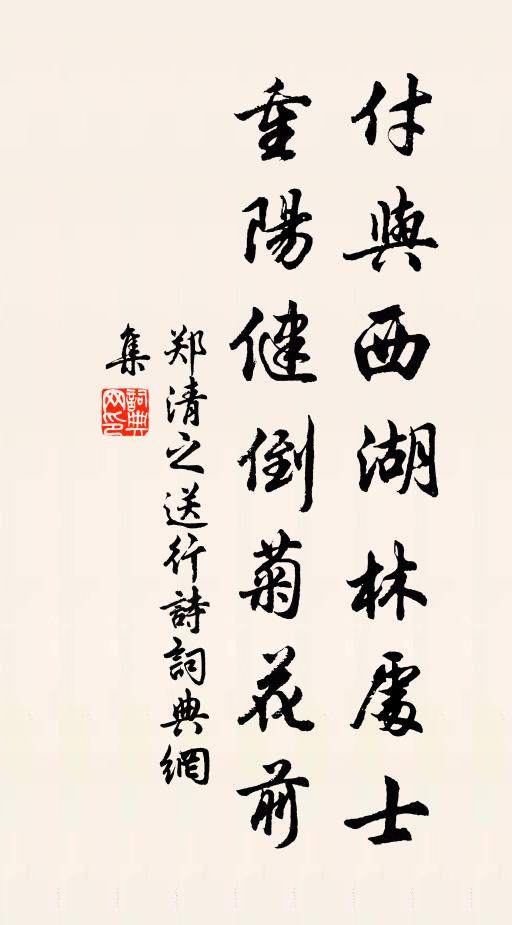 付與西湖林處士
重陽健倒菊花前
郑清之送行詩詞典網
集
詞典
网印